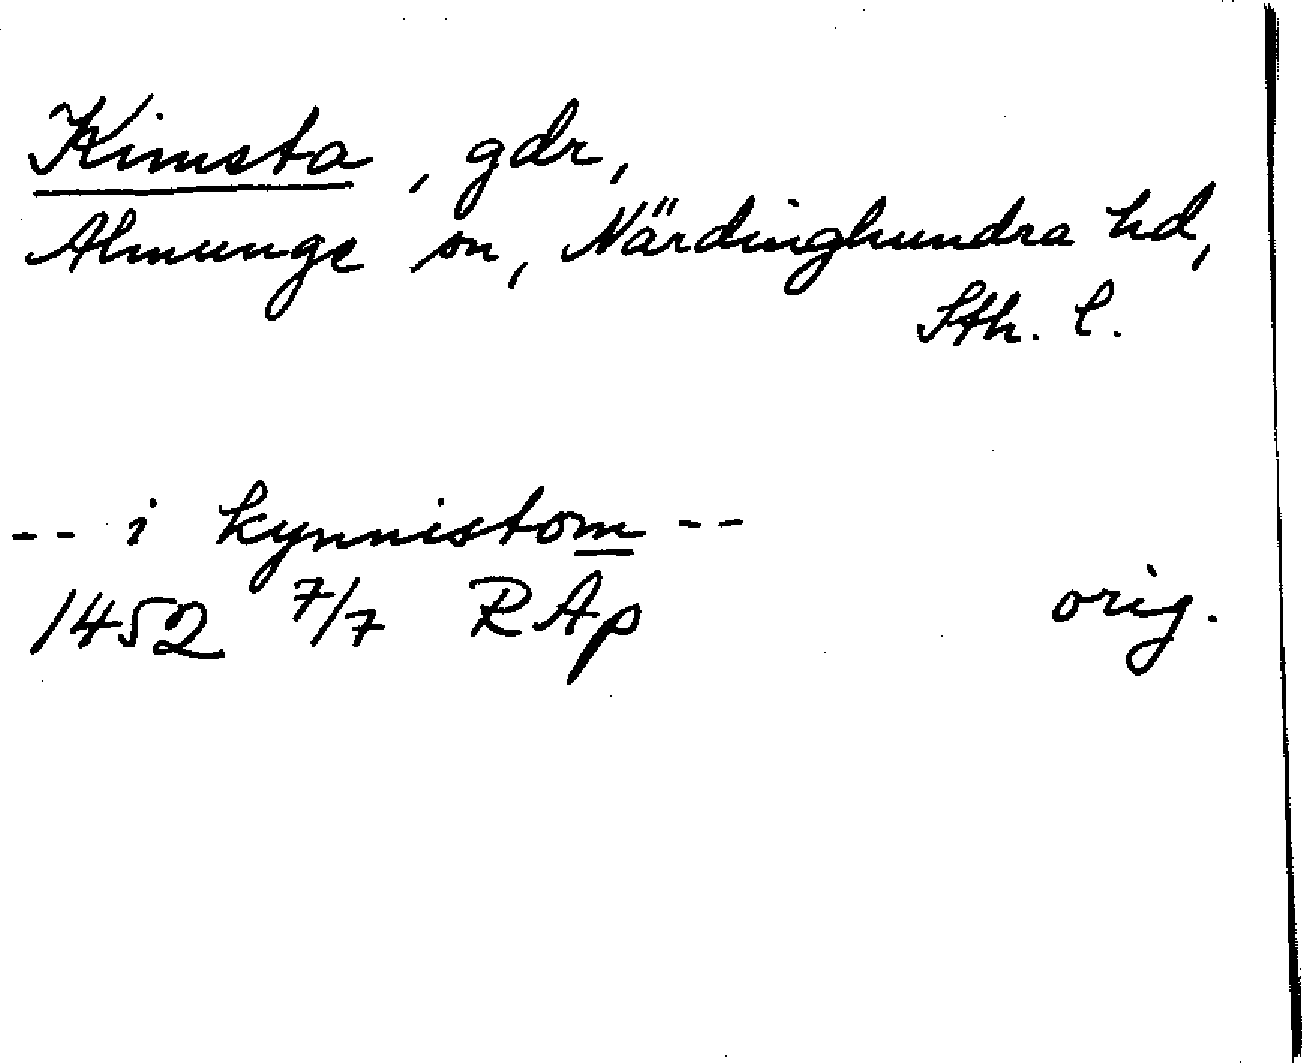 Kimsta, gdr,
Almunge sn, Närdinghundra hd,
Sth. l.
-- i kynnistom --
1452 7/7 RAp orig.